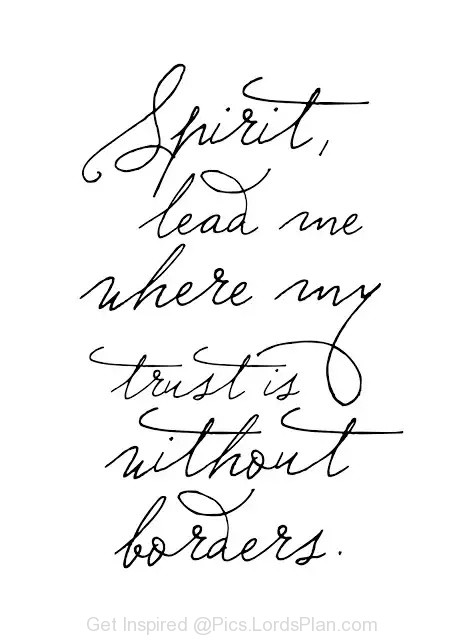 Spirit,
lead me
where my
trust is
without
borders.
Get Inspired @Pics.LordsPlan.com